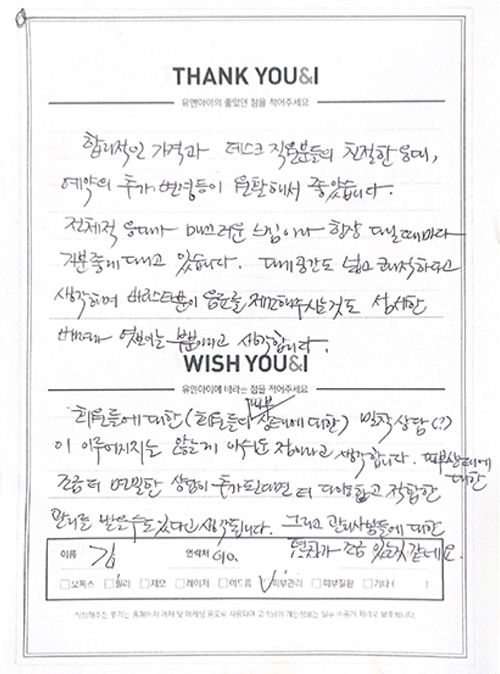 THANK YOU&I
유앤아이의 좋았던 점을 적어주세요
합리적인 가격과 데스크 직원분들의 친절한 응대,
예약의 추가 변경등이 원활해서 좋았습니다.
전체적 응대가 매끄러운 느낌이라 항상 다닐때마다
기분좋게 다니고 있습니다. 대기공간도 넓고 쾌적하다고
생각하며 음료를 제조해주시는것도 섬세한
배려가 엿보이는 부분이라고 생각합니다.
WISH YOU&I
유앤아이에 바라는 점을 적어주세요
피부
회원들에 대한 (회원들의 상태에 대한) 밀착상담(?)
이 이루어지지는 않는게 아쉬운 점이라고 생각합니다. 피부상태에
대한
조금 더 면밀한 상담이 추가된다면 더 다양하고 적합한
관리를 받을수도 있다고 생각됩니다. 그리고 관리사분들에 대한
편차가 조금 있는것 같네요.
이름 김 연락처 010.
보톡스 필러 제모 레이저 여드름 ✓피부관리 피부질환 기타 ( )
작성해주신 후기는 홈페이지 게재 및 마케팅 용도로 사용되며 고객님의 개인정보는 일부 모자이크 처리로 보호됩니다.